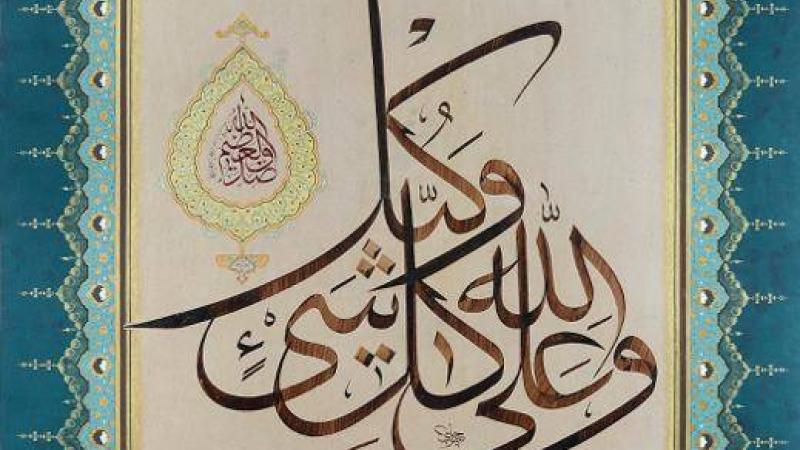 والله على كل شيء وكيل
صدق الله العظيم